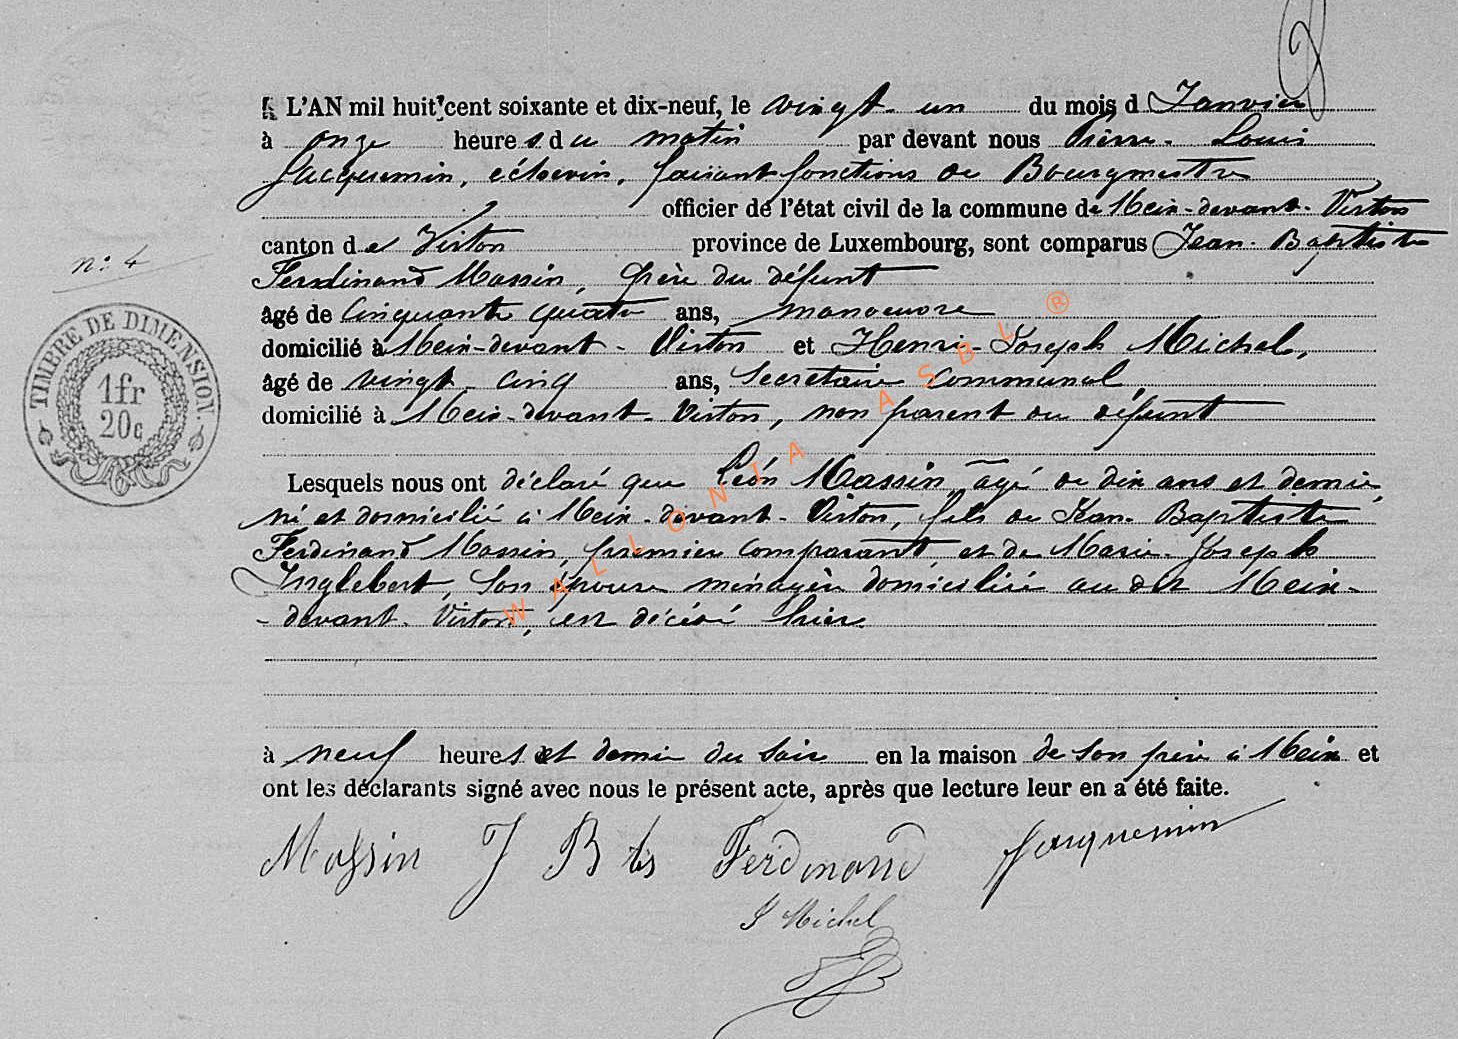 L'AN mil huit cent soixante et dix-neuf, le vingt-un du mois d Janvier
à onze heures du matin par devant nous Pierre-Louis
Jacquemin, échevin, faisant fonctions de Bourgmestre
officier de l'état civil de la commune de Meix-devant-Virton
canton de Virton province de Luxembourg, sont comparus Jean-Baptiste
n° 4
Ferdinand Massin, père du défunt
âgé de Cinquante quatre ans, manoeuvre
domicilié à Meix-devant-Virton et Henri-Joseph Michel,
âgé de vingt-cinq ans, Secrétaire communal,
domicilié à Meix-devant-Virton, non parent du défunt
TIMBRE DE DIMENSION
1fr
20c
Lesquels nous ont déclaré que Léon Massin, âgé de dix ans et demi
né et domicilié à Meix-devant-Virton, fils de Jean-Baptiste
Ferdinand Massin, premier comparant et de Marie-Joseph
Inglebert, son épouse ménagère domiciliée au dit Meix-
-devant-Virton, est décédé hier
à neuf heures et demie du soir en la maison de son père à Meix et
ont les déclarants signé avec nous le présent acte, après que lecture leur en a été faite.
Massin J Bte Ferdinand Jacquemin
J Michel
WALLONIA ASBL ®